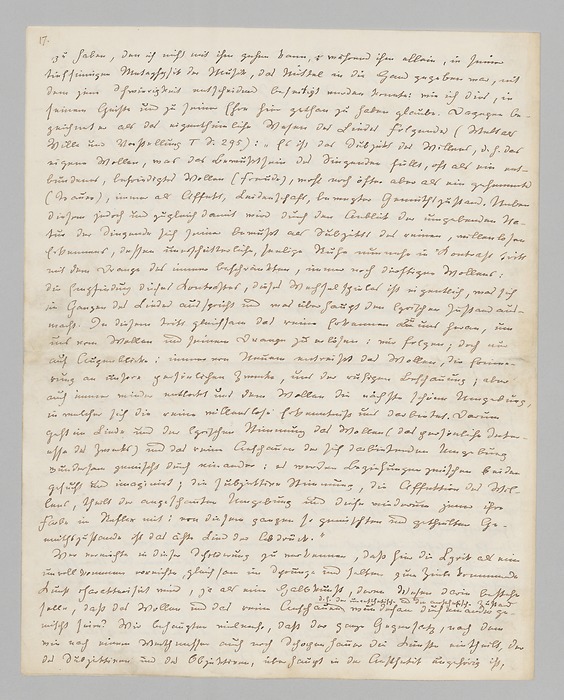 17.
zu haben, den ich nicht mit ihm gehen kann, während ihm allein, in seiner
tiefsinnigen Metaphysik der Musik, das Mittel in die Hand gegeben war, mit
dem jene Schwierigkeit entscheidend beseitigt werden konnte: wie ich dies, in
seinem Geiste und zu seiner Ehre hier gethan zu haben glaube. Dagegen be-
zeichnet er als das eigenthümliche Wesen des Liedes Folgendes (Welt als
Wille und Vorstellung I S. 295): „Es ist das Subjekt des Willens, d. h. das
eigene Wollen, was das Bewußtsein des Singenden füllt, oft als ein ent-
bundenes, befriedigtes Wollen (Freude), wohl noch öfter aber als ein gehemmtes
(Trauer), immer als Affekt, Leidenschaft, bewegter Gemüthszustand. Neben
diesem jedoch und zugleich damit wird durch den Anblick der umgebenden Na-
tur der Singende sich seiner bewußt als Subjekts des reinen, willenlosen
Erkennens, dessen unerschütterliche, seelige Ruhe nunmehr in Kontrast tritt
mit dem Drange des immer beschränkten, immer noch dürftigen Wollens:
die Empfindung dieses Kontrastes, dieses Wechselspieles ist eigentlich, was sich
im Ganzen des Liedes ausspricht und was überhaupt den lyrischen Zustand aus-
macht. In diesem tritt gleichsam das reine Erkennen zu uns heran, um
uns vom Wollen und seinem Drange zu erlösen: wir folgen; doch nur
auf Augenblicke: immer von Neuem entreißt das Wollen, die Erinne-
rung an unsere persönlichen Zwecke, uns der ruhigen Beschauung; aber
auch immer wieder entlockt uns dem Wollen die nächste schöne Umgebung,
in welcher sich die reine willenlose Erkenntniß uns darbietet. Darum
geht im Liede und der lyrischen Stimmung das Wollen (das persönliche Inter-
esse der Zwecke) und das reine Anschauen der sich darbietenden Umgebung
wundersam gemischt durch einander: es werden Beziehungen zwischen beiden
gesucht und imaginirt; die subjektive Stimmung, die Affektion des Wil-
lens, theilt der angeschauten Umgebung und diese wiederum jener ihre
Farbe im Reflex mit: von diesem ganzen so gemischten und getheilten Ge-
müthszustande ist das ächte Lied der Abdruck.“
Wer vermöchte in dieser Schilderung zu verkennen, daß hier die Lyrik als eine
unvollkommen erreichte, gleichsam im Sprunge und selten zum Ziele kommende
Kunst charakterisirt wird, ja als eine Halbkunst, deren Wesen darin bestehen
d. h. der unaesthetische und der aesthetische Zustand
solle, daß das Wollen und das reine Anschauen, wundersam durcheinander ge-
mischt sein? Wir behaupten vielmehr, daß der ganze Gegensatz, nach dem
wie nach einem Werthmesser auch noch Schopenhauer die Künste eintheilt, der
des Subjektiven und des Objektiven, überhaupt in der Aesthetik ungehörig ist,